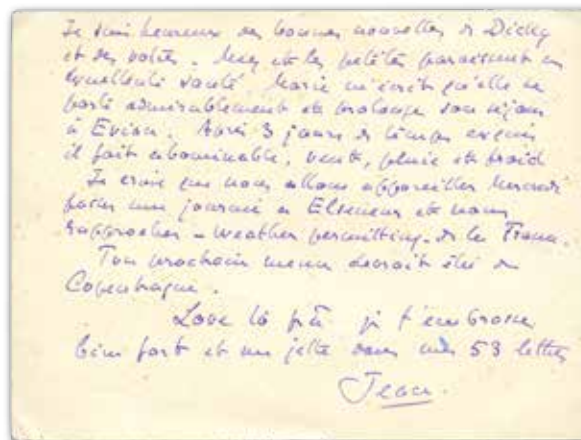 Je suis heureux des bonnes nouvelles de Dicky
et des votres. Mey et les petites paraissent en
excellente santé. Marie m'écrit qu'elle se
porte admirablement et prolonge son séjour
à Evian. Après 3 jours de temps exquis
il fait abominable, vent, pluie et froid
Je crois que nous allons appareiller Mercredi
passer une journée à Elseneur et nous
rapprocher - weather permitting - de la France.
Ton prochain menu devrait être de
Copenhague.
Love to je t'embrasse
bien fort et me jette dans mes 53 lettres
Jean.